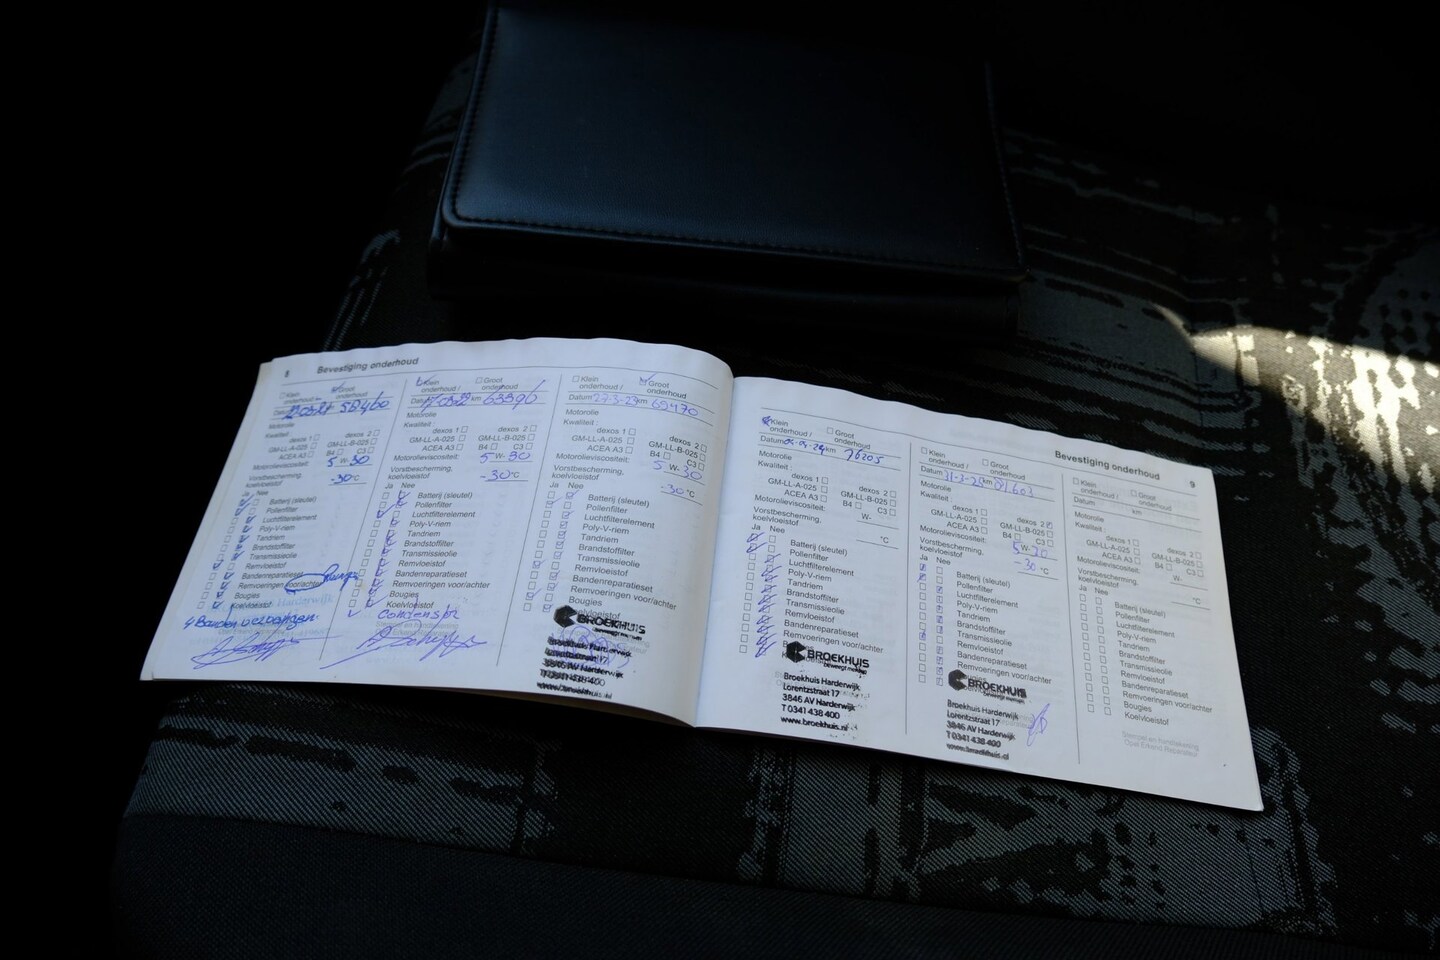 8 Bevestiging onderhoud
Klein onderhoud / Groot onderhoud
Datum km 58460
Motorolie
Kwaliteit: dexos 1 dexos 2
GM-LL-A-025 GM-LL-B-025
ACEA A3 B4 C3
Motorolieviscositeit: 5 W- 30
Vorstbescherming, koelvloeistof -30 °C
Ja Nee
Batterij (sleutel)
Pollenfilter
Luchtfilterelement
Poly-V-riem
Tandriem
Brandstoffilter
Transmissieolie
Remvloeistof
Bandenreparatieset
Remvoeringen voor/achter
Bougies
Koelvloeistof
4 Banden vervangen.
Klein onderhoud / Groot onderhoud
Datum km 63396
Motorolie
Kwaliteit: dexos 1 dexos 2
GM-LL-A-025 GM-LL-B-025
ACEA A3 B4 C3
Motorolieviscositeit: 5 W- 30
Vorstbescherming, koelvloeistof -30 °C
Ja Nee
Batterij (sleutel)
Pollenfilter
Luchtfilterelement
Poly-V-riem
Tandriem
Brandstoffilter
Transmissieolie
Remvloeistof
Bandenreparatieset
Remvoeringen voor/achter
Bougies
Koelvloeistof
Klein onderhoud / Groot onderhoud
Datum 27-3-23 km 69470
Motorolie
Kwaliteit: dexos 1 dexos 2
GM-LL-A-025 GM-LL-B-025
ACEA A3 B4 C3
Motorolieviscositeit: 5 W- 30
Vorstbescherming, koelvloeistof -30 °C
Ja Nee
Batterij (sleutel)
Pollenfilter
Luchtfilterelement
Poly-V-riem
Tandriem
Brandstoffilter
Transmissieolie
Remvloeistof
Bandenreparatieset
Remvoeringen voor/achter
Bougies
Koelvloeistof
BROEKHUIS
Broekhuis Harderwijk
Lorentzstraat 17
3846 AV Harderwijk
T 0341 438 400
www.broekhuis.nl
Bevestiging onderhoud 9
Klein onderhoud / Groot onderhoud
Datum 04-04-24 km 76205
Motorolie
Kwaliteit: dexos 1 dexos 2
GM-LL-A-025 GM-LL-B-025
ACEA A3 B4 C3
Motorolieviscositeit: W-
Vorstbescherming, koelvloeistof °C
Ja Nee
Batterij (sleutel)
Pollenfilter
Luchtfilterelement
Poly-V-riem
Tandriem
Brandstoffilter
Transmissieolie
Remvloeistof
Bandenreparatieset
Remvoeringen voor/achter
BROEKHUIS
beweegt mensen
Broekhuis Harderwijk
Lorentzstraat 17
3846 AV Harderwijk
T 0341 438 400
www.broekhuis.nl
Klein onderhoud / Groot onderhoud
Datum 31-3-25 km 81.603
Motorolie
Kwaliteit dexos 1 dexos 2
GM-LL-A-025 GM-LL-B-025
ACEA A3 B4 C3
Motorolieviscositeit: 5 W-
Vorstbescherming, koelvloeistof -30 °C
Ja Nee
Batterij (sleutel)
Pollenfilter
Luchtfilterelement
Poly-V-riem
Tandriem
Brandstoffilter
Transmissieolie
Remvloeistof
Bandenreparatieset
Remvoeringen voor/achter
Bougies
BROEKHUIS
beweegt mensen
Broekhuis Harderwijk
Lorentzstraat 17
3846 AV Harderwijk
T 0341 438 400
www.broekhuis.nl
Klein onderhoud / Groot onderhoud
Datum km
Motorolie
Kwaliteit: dexos 1 dexos 2
GM-LL-A-025 GM-LL-B-025
ACEA A3 B4 C3
Motorolieviscositeit: W-
Vorstbescherming, koelvloeistof °C
Ja Nee
Batterij (sleutel)
Pollenfilter
Luchtfilterelement
Poly-V-riem
Tandriem
Brandstoffilter
Transmissieolie
Remvloeistof
Bandenreparatieset
Remvoeringen voor/achter
Bougies
Koelvloeistof
Stempel en handtekening
Opel Erkend Reparateur